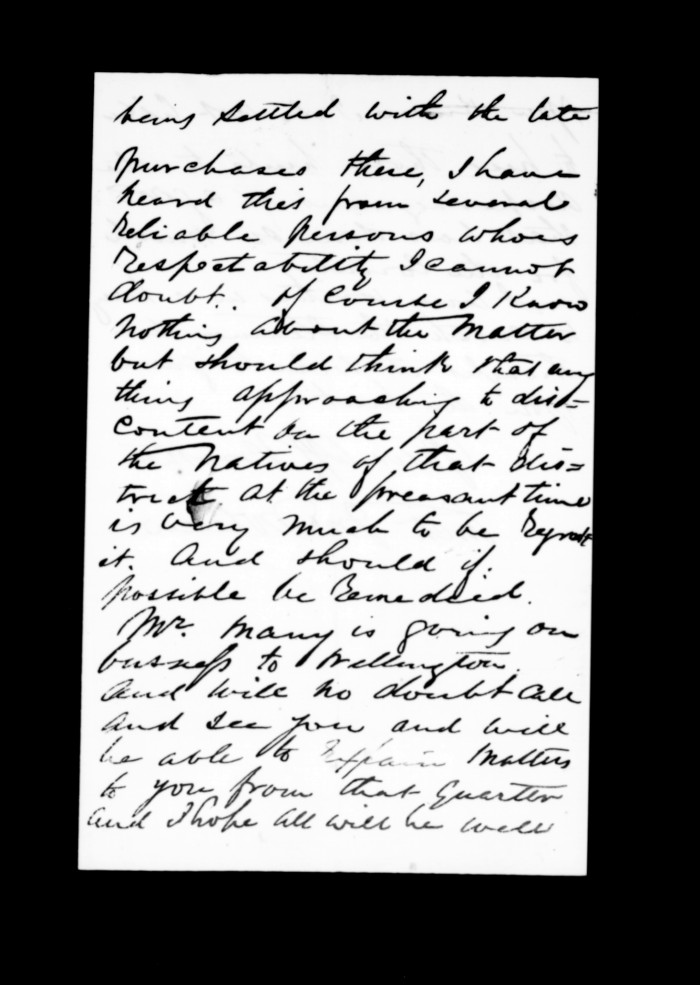 being settled with the late
purchases there, I have
heard this from several
reliable persons whoes
respectability I cannot
doubt. of Course I Know
nothing about the Matter
but should think that any
thing approaching to dis=
content on the part of
the Natives of that dis=
trict at the preasant time
is very much to be
it. And should if
possible be Remedied.
Mr. is going on
to Wellington
and will no doubt call
and see you and will
be able to Explain Matters
to you from that quarter
and I hope all will be well